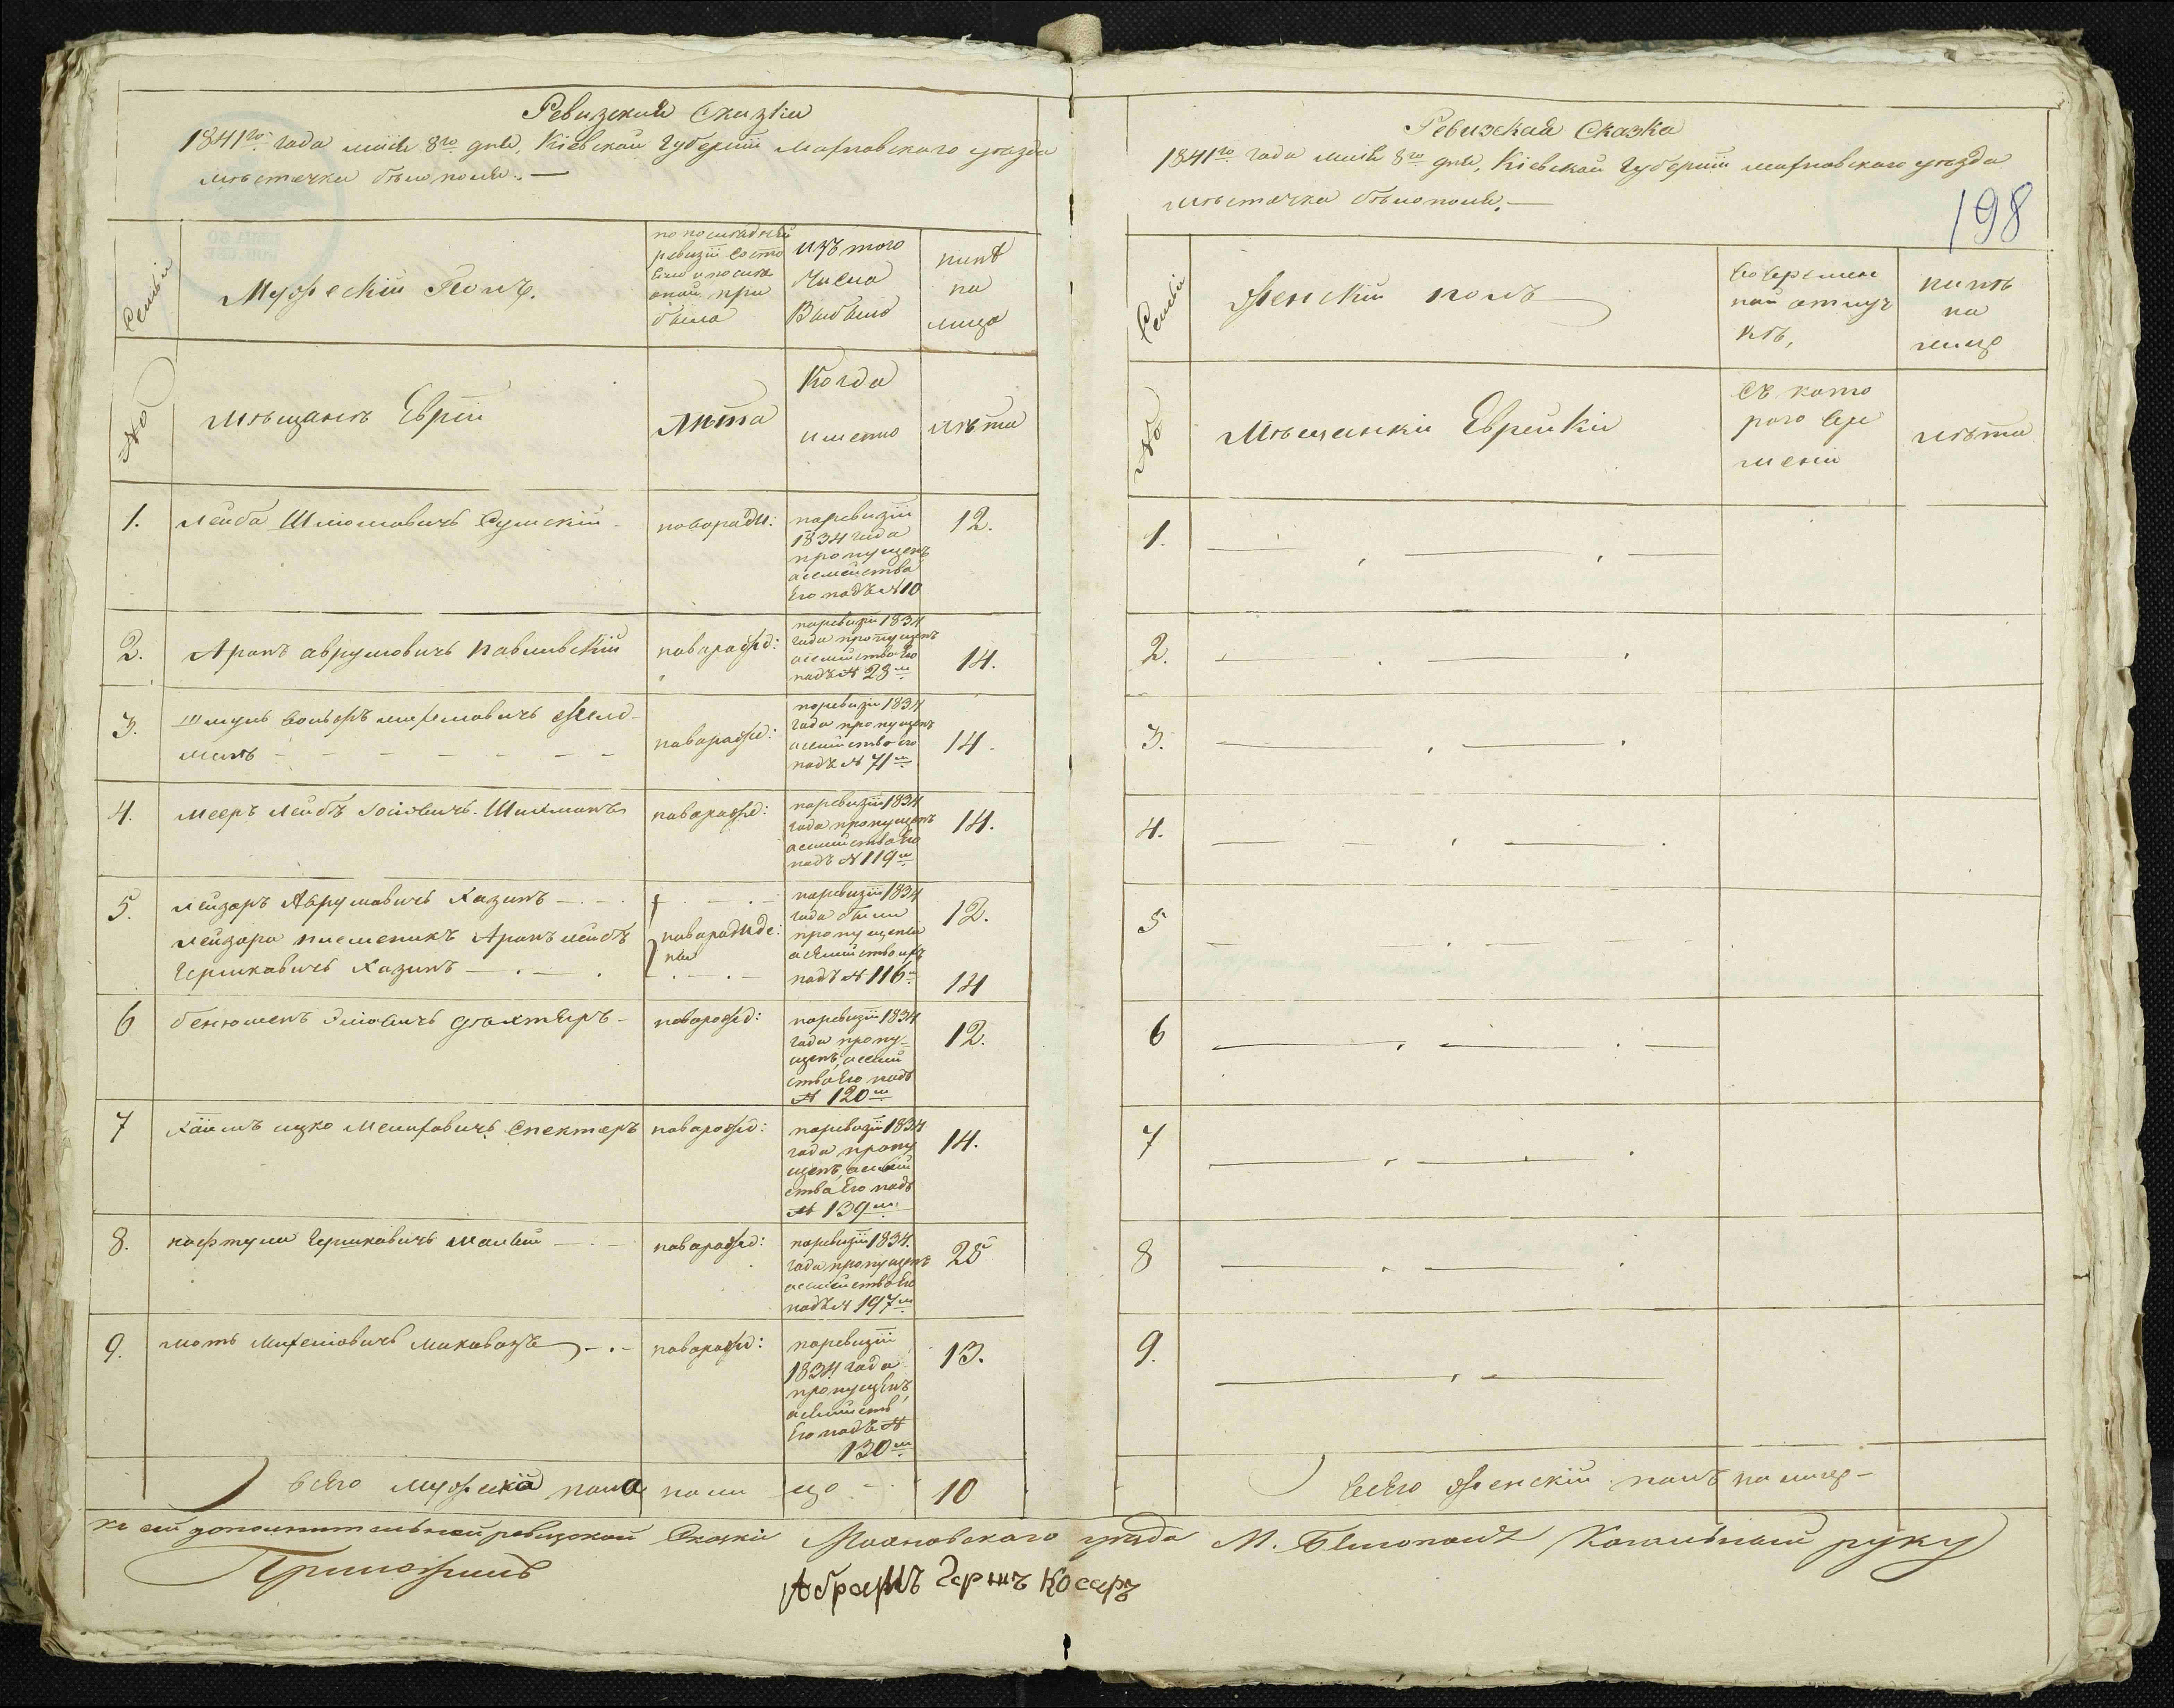 Ревизская Сказка
1841го года маія 8го дня, Кіевской Губерніи Махновскаго уѣзда
мѣстечка бѣлополя. —
Семьи
Мужескій Полъ.
по последней
ревизіи состо
яло и после
оной при
было
Изъ того
Числа
Выбыло
ныне
на
лицо
№
мѣщане Евреи
Лѣта
Когда
именно
лѣта
1.
Лейба Шліомовичъ Сумскій
новорож:
поревизіи
1834 года
пропущенъ
асемейства
Его подъ №10
12.
2.
Аронъ аврумовичъ павливскій
новорожд:
поревизіи 1834
года пропущенъ
асемейство Его
подъ № 28м
14.
3.
Шмуль
мань
новорожд:
поревизіи 1834
года пропущенъ
асемейство Его
подъ № 71м
14.
4.
Мееръ Лейбъ Іосіовичъ Шихманъ
новорожд:
поревизіи 1834
года пропущенъ
асемейства Его
подъ № 119м
14.
5.
лейзоръ Аврумовичъ Хазинъ
лейзора племеникъ Аронъ лейбъ
Гершковичъ Хазинъ
новорожде:
ны
поревизіи 1834
года были
пропущены
асемейство ихъ
подъ № 116м
12.
14
6
бенюменъ Эліовичъ
новорожд:
поревизіи 1834
года пропу-
щенъ, асемей
ства Его подъ
№ 120м
12.
7
Хаимъ ицко Спекторъ
новорожд:
поревизіи 1834
года пропу
щенъ, асемей
ства Его подъ
№ 139м
14.
8.
нафтула Гершковичъ малый
новорожд:
поревизіи 1834.
года пропущенъ
асемейство Его
подъ № 197м
25
9.
моть Михелiовичъ
новорожд:
поревизіи
1834 года
пропущенъ,
асемейств
Его подъ №
130м
13.
всего мужеска пола на ли цо — 10
Ревизская Сказка
1841го года маія 8го дня, Кіевской Губерніи махновскаго уѣзда
мѣстечка бѣлополя. —
198
Семьи
Женскій полъ
Вовремен
ной отлуч
кѣ,
нынѣ
на
лицо
№
Мещанки Еврейки
Съ кото
рого вре
мени
лѣта
1.
2.
3.
4.
5
6
7
8
9.
всего Женскій полъ на лицо —
Къ сей дополнительной ревизской Сказки Махновскаго уѣзда М. Белополя Кагальный руку
Приложилъ
Абрамъ Гершъ Косаръ